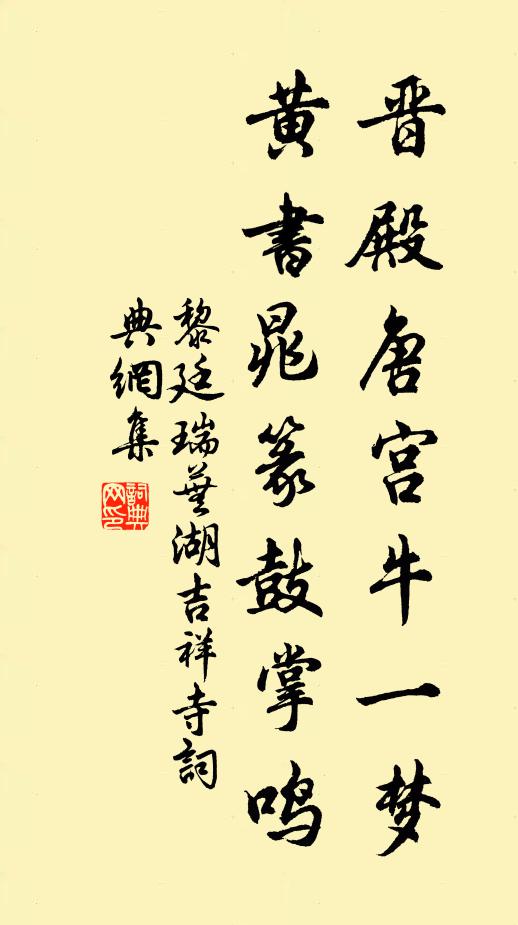 晋殿唐宫牛一梦
黄書晁篆鼓掌鸣
黎廷瑞蕪湖吉祥寺詞
典網集
詞典
网印